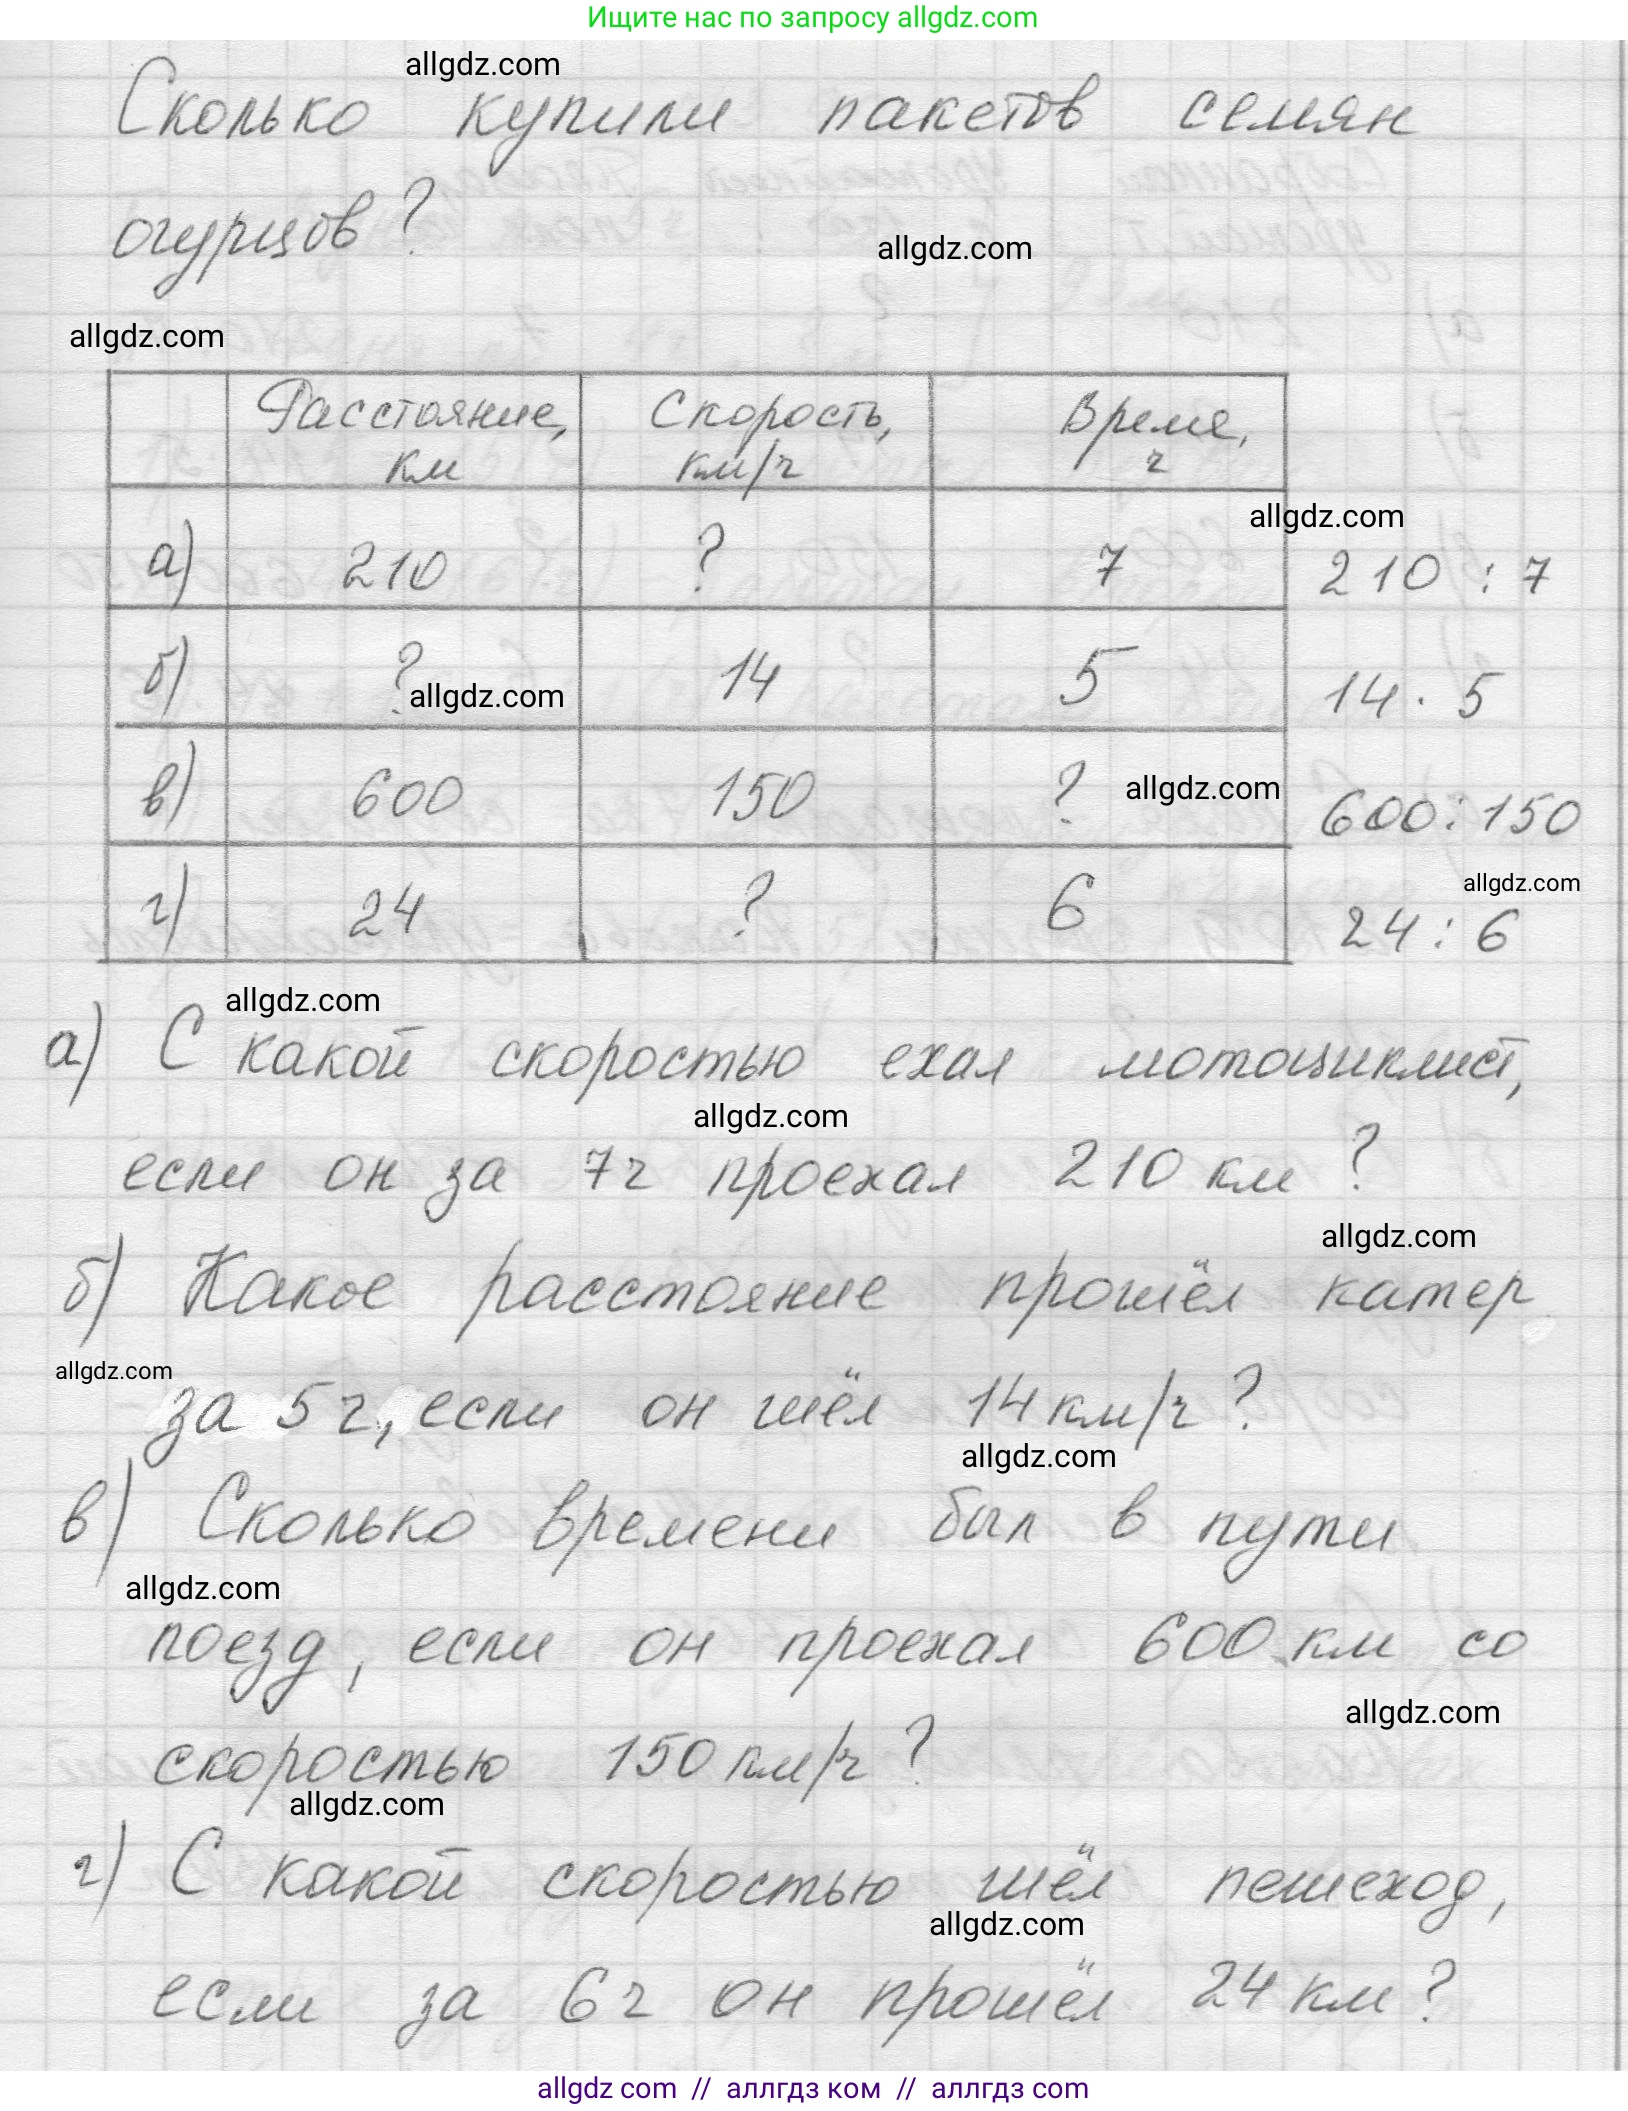 Ищите нас по запросу allgdz.com
allgdz.com
Сколько купили пакетов семян
огурцов?
allgdz.com
allgdz.com
Расстояние, км Скорость, км/ч Время, ч
allgdz.com
а) 210 ? 7 210 : 7
б) ? 14 5 14 · 5
allgdz.com
в) 600 150 ? 600 : 150
allgdz.com
allgdz.com
г) 24 ? 6 24 : 6
allgdz.com
а) С какой скоростью ехал мотоциклист,
allgdz.com
если он за 7ч проехал 210 км?
allgdz.com
б) Какое расстояние прошёл катер
allgdz.com
за 5ч, если он шёл 14 км/ч?
allgdz.com
в) Сколько времени был в пути
allgdz.com
поезд, если он проехал 600 км со
allgdz.com
скоростью 150 км/ч?
allgdz.com
г) С какой скоростью шёл пешеход,
allgdz.com
если за 6ч он прошёл 24 км?
allgdz com // аллгдз ком // аллгдз com